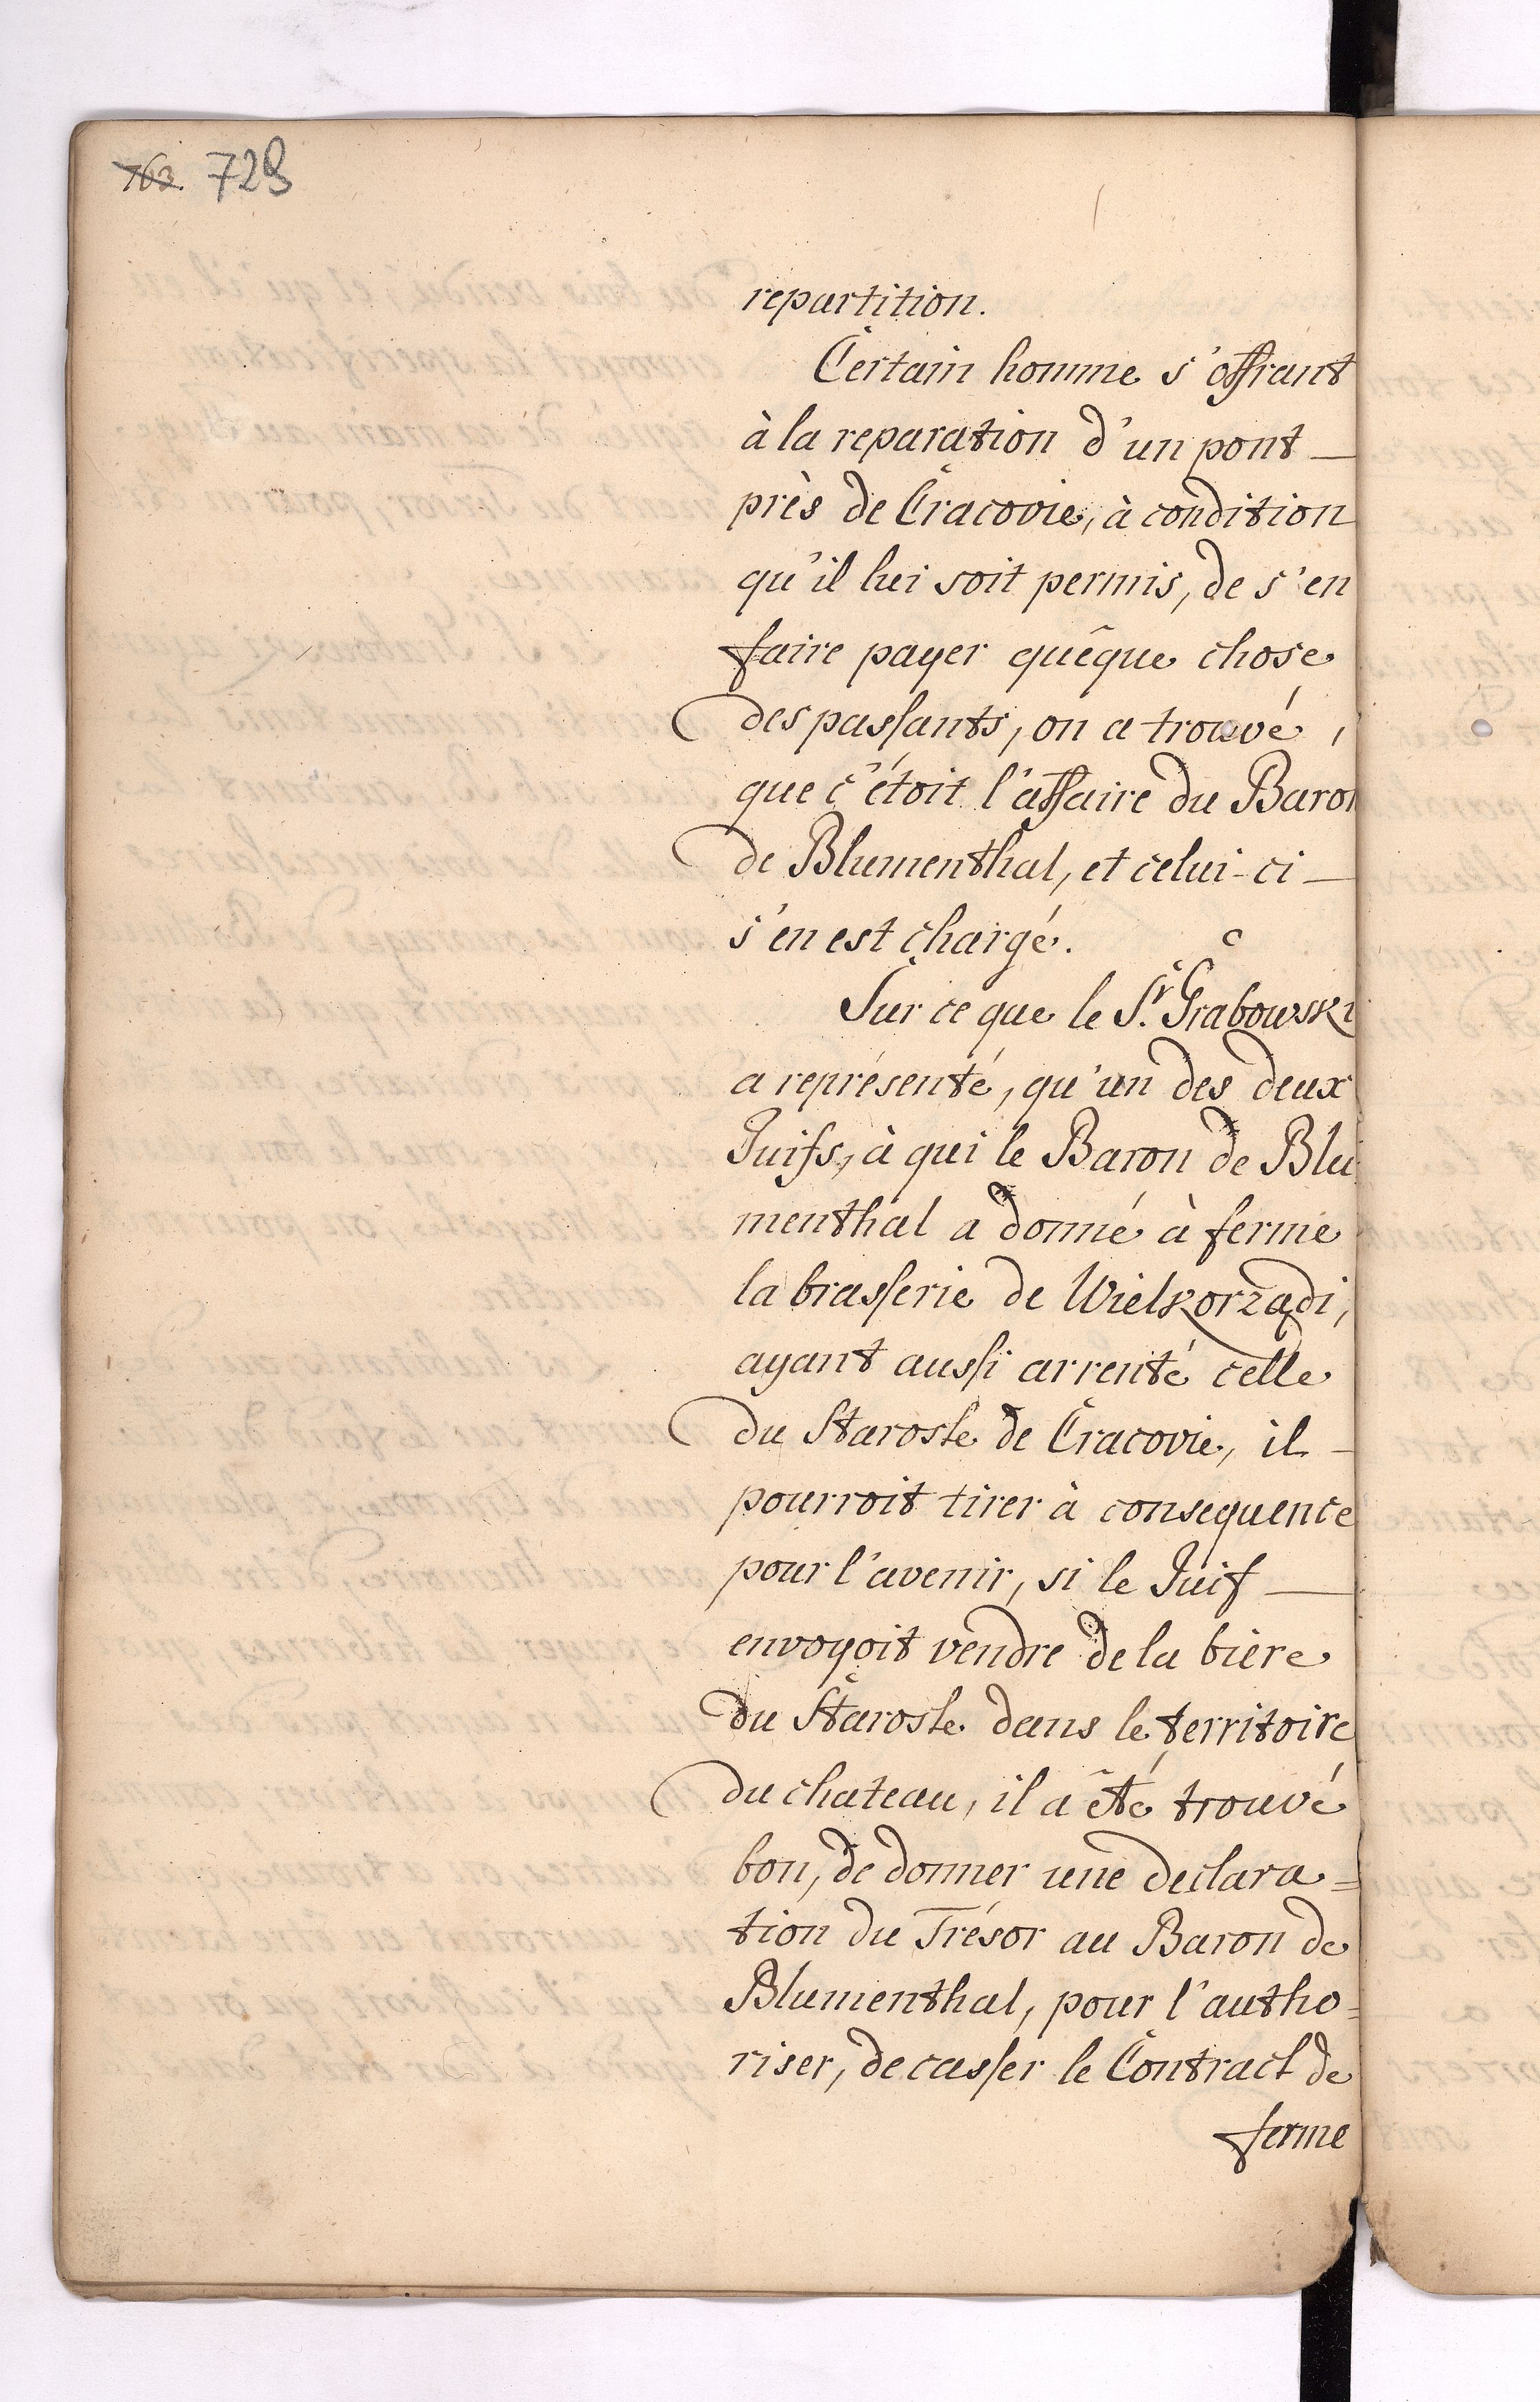 763. 729
repartition.
Certain homme s'offrant
à la reparation d'un pont —
près de Cracovie, à condition
qu'il lui soit permis, de s'en
faire payer quêque chose
des passants, on a trouvé,
que c'étoit l'affaire du Baron
de Blumenthal, et celui-ci —
s'en est chargé.
Sur ce que le Sr. Grabowski
a représenté, qu'un des deux
Juifs, à qui le Baron de Blu
menthal a donné à ferme
la brasserie de Wielkorządi,
ayant aussi arrenté celle
du Staroste de Cracovie, il —
pourroit tirer à consequence
pour l'avenir, si le Juif —
envoyoit vendre de la bière
du Staroste dans le territoire
du chateau, il a été trouvé
bon, de donner une declara=
tion du Trésor au Baron de
Blumenthal, pour l'autho=
riser, de casser le Contract de
ferme